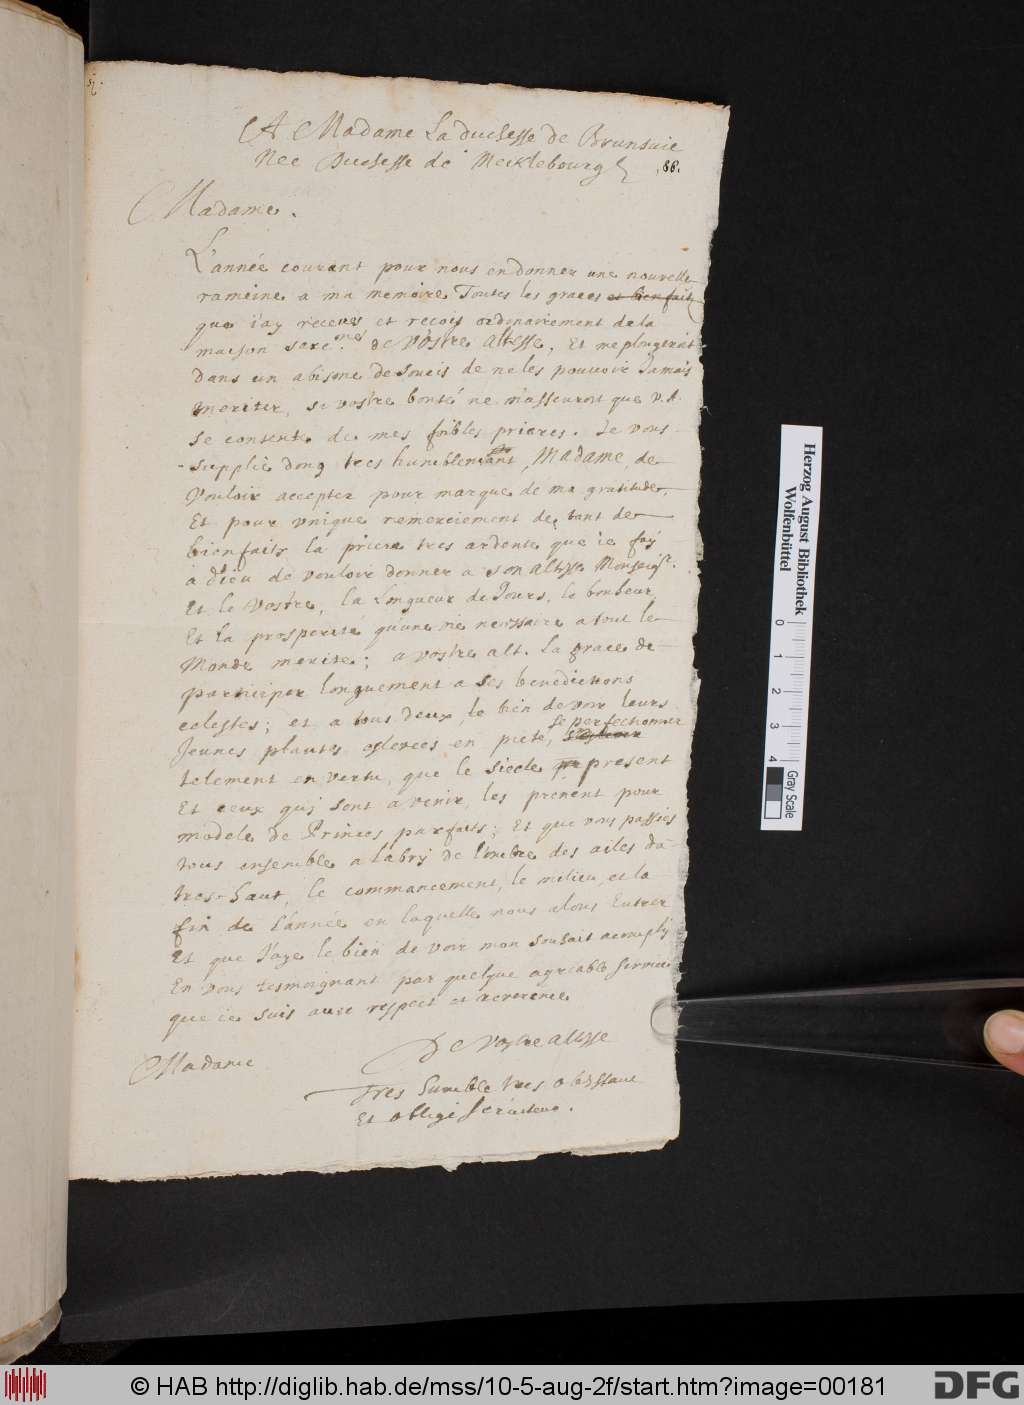 A Madame La duchesse de Brunsuic
Nee Duchesse de Mecklebourg
88.
Madame.
L'année courant pour nous en donner une nouvelle
rameine a ma memoire Toutes les graces et bienfait
que i'ay receues et reçois ordinairement de la
maison serenme de Vostre Altesse, Et me plongeroit
dans un abisme de soucis de ne les pouvoir Jamais
meriter, si vostre bonté ne m'asseuroit que V.A.
se contente de mes foibles prieres. Je vous
supplie donq tres humblement, Madame, de
Vouloir accepter pour marque de ma gratitude,
Et pour vnique remerciement de tant de
bienfaits la priere tres ardente que ie fay
a dieu de vouloir donner a son Altesse Monseigr.
Et le Vostre, la Longueur de Jours, le bonheur,
Et la prosperité qu'une me necessaire a tout le
Monde merite; a vostre alt. La grace de
participer longuement a ses benedictions
celestes; et a tous deux le bien de voir leurs
Jeunes plantes eslevees en pieté, se perfectionner
telement en vertu, que le siecle present
Et ceux quj sont a venir, les prenent pour
modele de Princes parfaits; Et que vous passiés
tous ensemble a l'abrj de l'ombre des ailes du
tres-haut, le commancement, le milieu, et la
fin de L'année en laquelle nous alons Entrer
Et que J'aye le bien de voir mon souhait acomplj
En vous tesmoignant par quelque agreable service
que ie suis avec respect et reverence
De Vostre Altesse
Madame
Tres humble tres obeissant
Et obligé serviteur.
Herzog August Bibliothek
Wolfenbüttel
0 1 2 3 4
Gray Scale
© HAB http://diglib.hab.de/mss/10-5-aug-2f/start.htm?image=00181
DFG